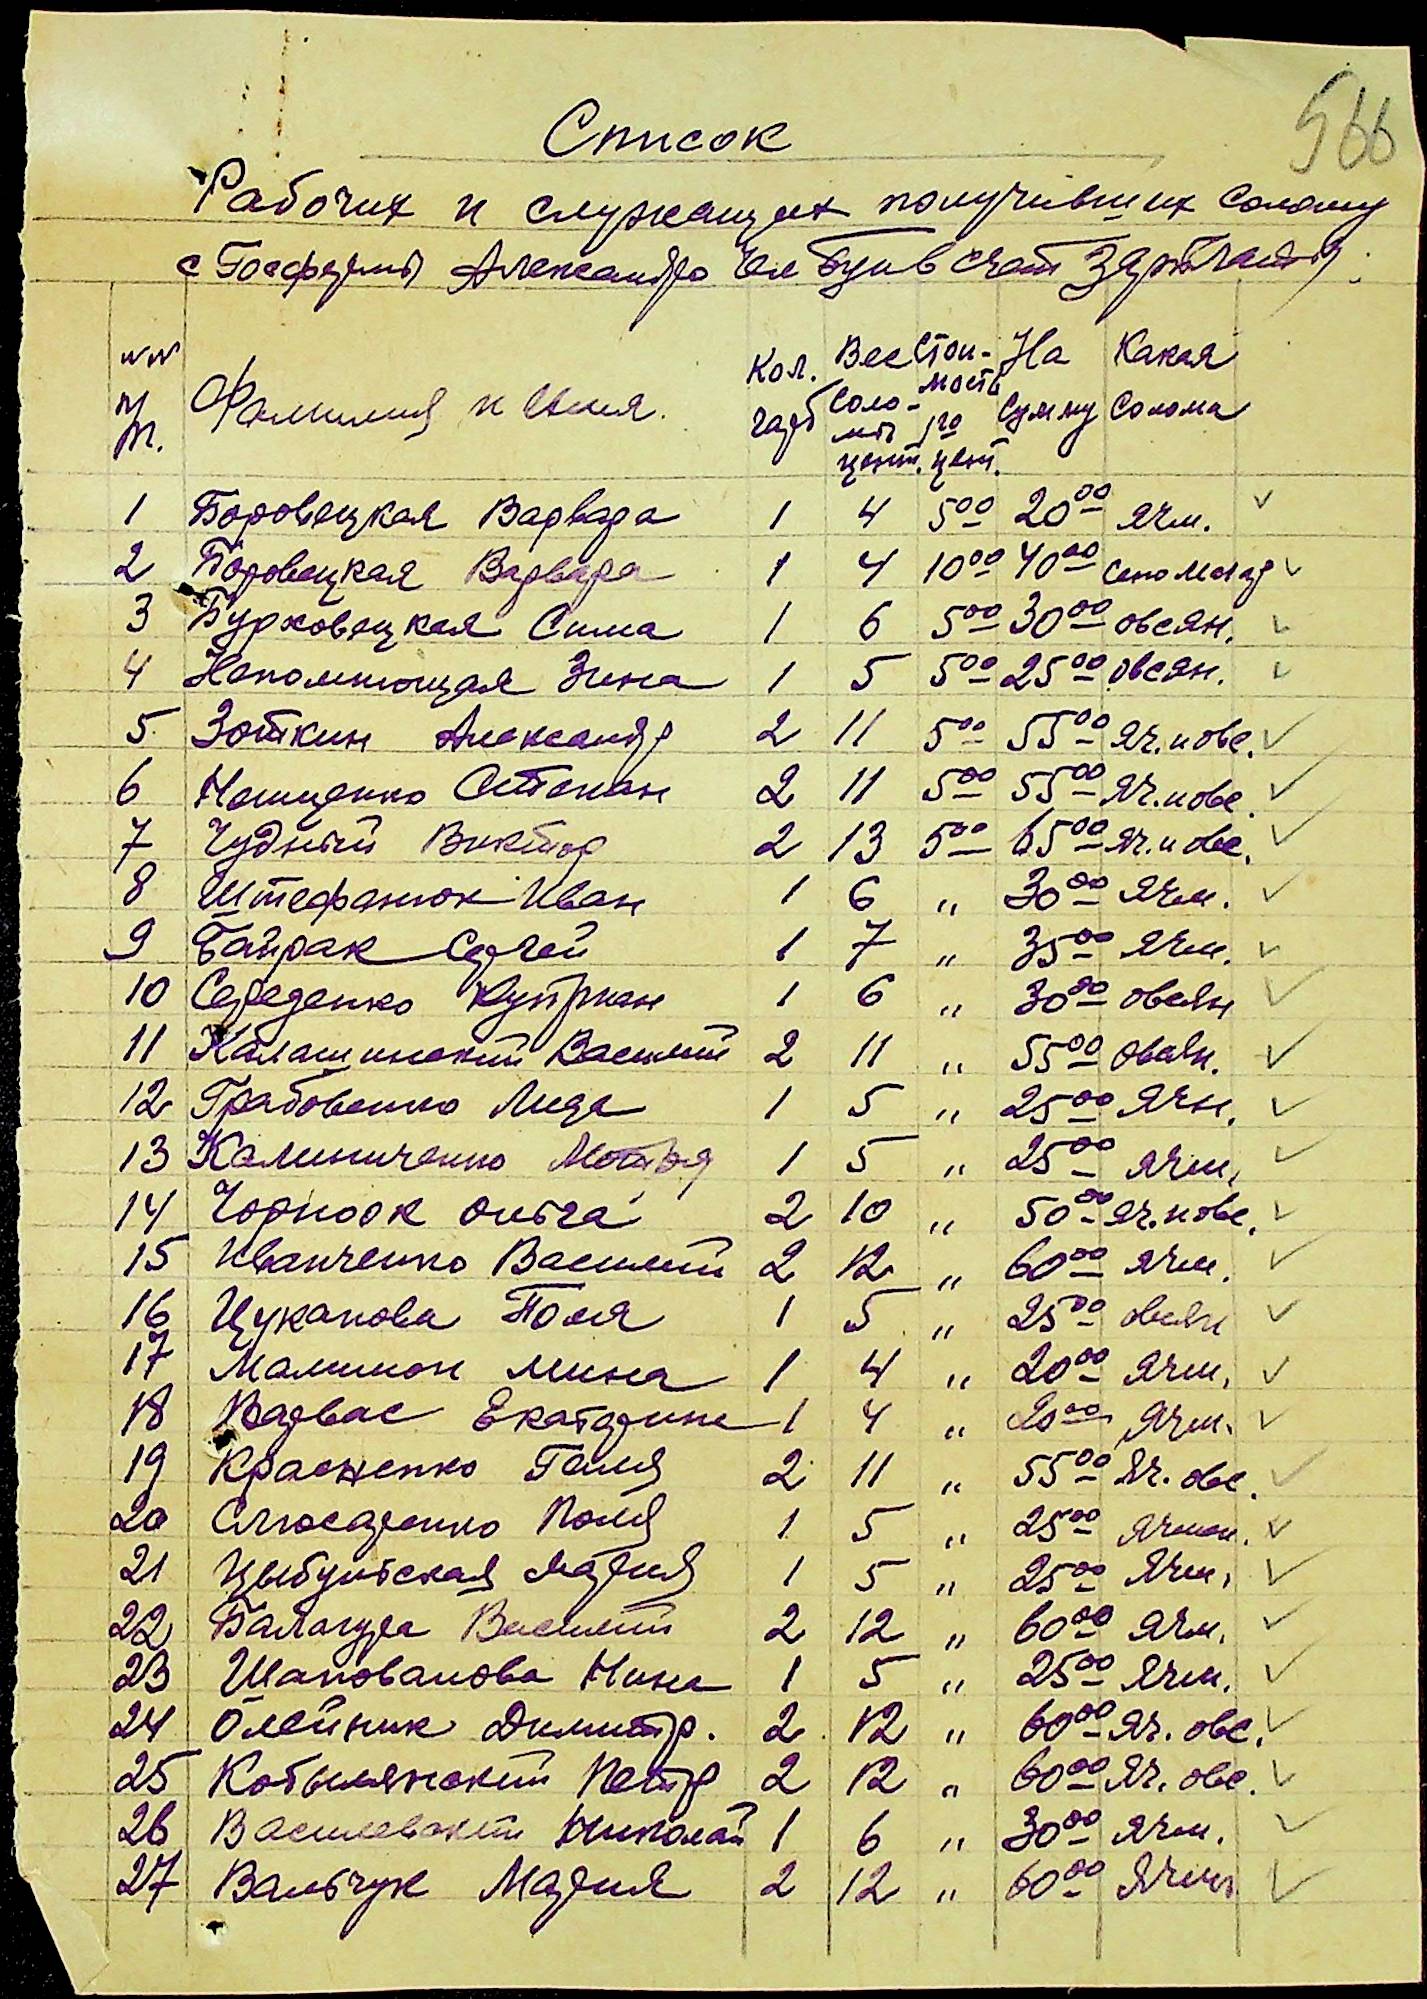 566
Список
Рабочих и служащих получивших солому
с Госфермы Александро в счет Зарплаты.
№№ п/п. Фамилия и Имя. Кол. гарб Вес соломы цент. Стоимость 1го цент. На сумму Какая солома
1 Боровецкая Варвара 1 4 5 00 20 00 ячм. ✓
2 Боровецкая Варвара 1 4 10 00 40 00 ✓
3 Бурковецкая Сима 1 6 5 00 30 00 овсян. ✓
4 Непомнющая Зина 1 5 5 00 25 00 овсян. ✓
5 Зоткин Александр 2 11 5 00 55 00 яч. и овс. ✓
6 Степан 2 11 5 00 55 00 яч. и овс. ✓
7 Чудный Виктор 2 13 5 00 65 00 яч. и овс. ✓
8 Штефанюк Иван 1 6 " 30 00 ячм. ✓
9 Байрак Сергей 1 7 " 35 00 ячм. ✓
10 Середенко Куприян 1 6 " 30 00 овсян ✓
11 Калашинский Василий 2 11 " 55 00 овсян. ✓
12 Грабовенко Лида 1 5 " 25 00 ячм. ✓
13 Калиниченко Мотря 1 5 " 25 00 ячм. ✓
14 Чорноок Ольга 2 10 " 50 00 яч. и овс. ✓
15 Иванченко Василий 2 12 " 60 00 ячм. ✓
16 Цуканова Поля 1 5 " 25 00 овсян ✓
17 Малимон Мина 1 4 " 20 00 ячм. ✓
18 Варвас Екатерина 1 4 " 20 00 ячм. ✓
19 Красненко Галя 2 11 " 55 00 яч. овс. ✓
20 Слюсаренко Поля 1 5 " 25 00 ячмен. ✓
21 Цыбульская Мария 1 5 " 25 00 ячм. ✓
22 Балагура Василий 2 12 " 60 00 ячм. ✓
23 Шаповалова Нина 1 5 " 25 00 ячм. ✓
24 Олейник Димитр. 2 12 " 60 00 яч. овс. ✓
25 Кобылянский Петр 2 12 " 60 00 яч. овс. ✓
26 Василевский Николай 1 6 " 30 00 ячм. ✓
27 Вальчук Мария 2 12 " 60 00 ячм. ✓